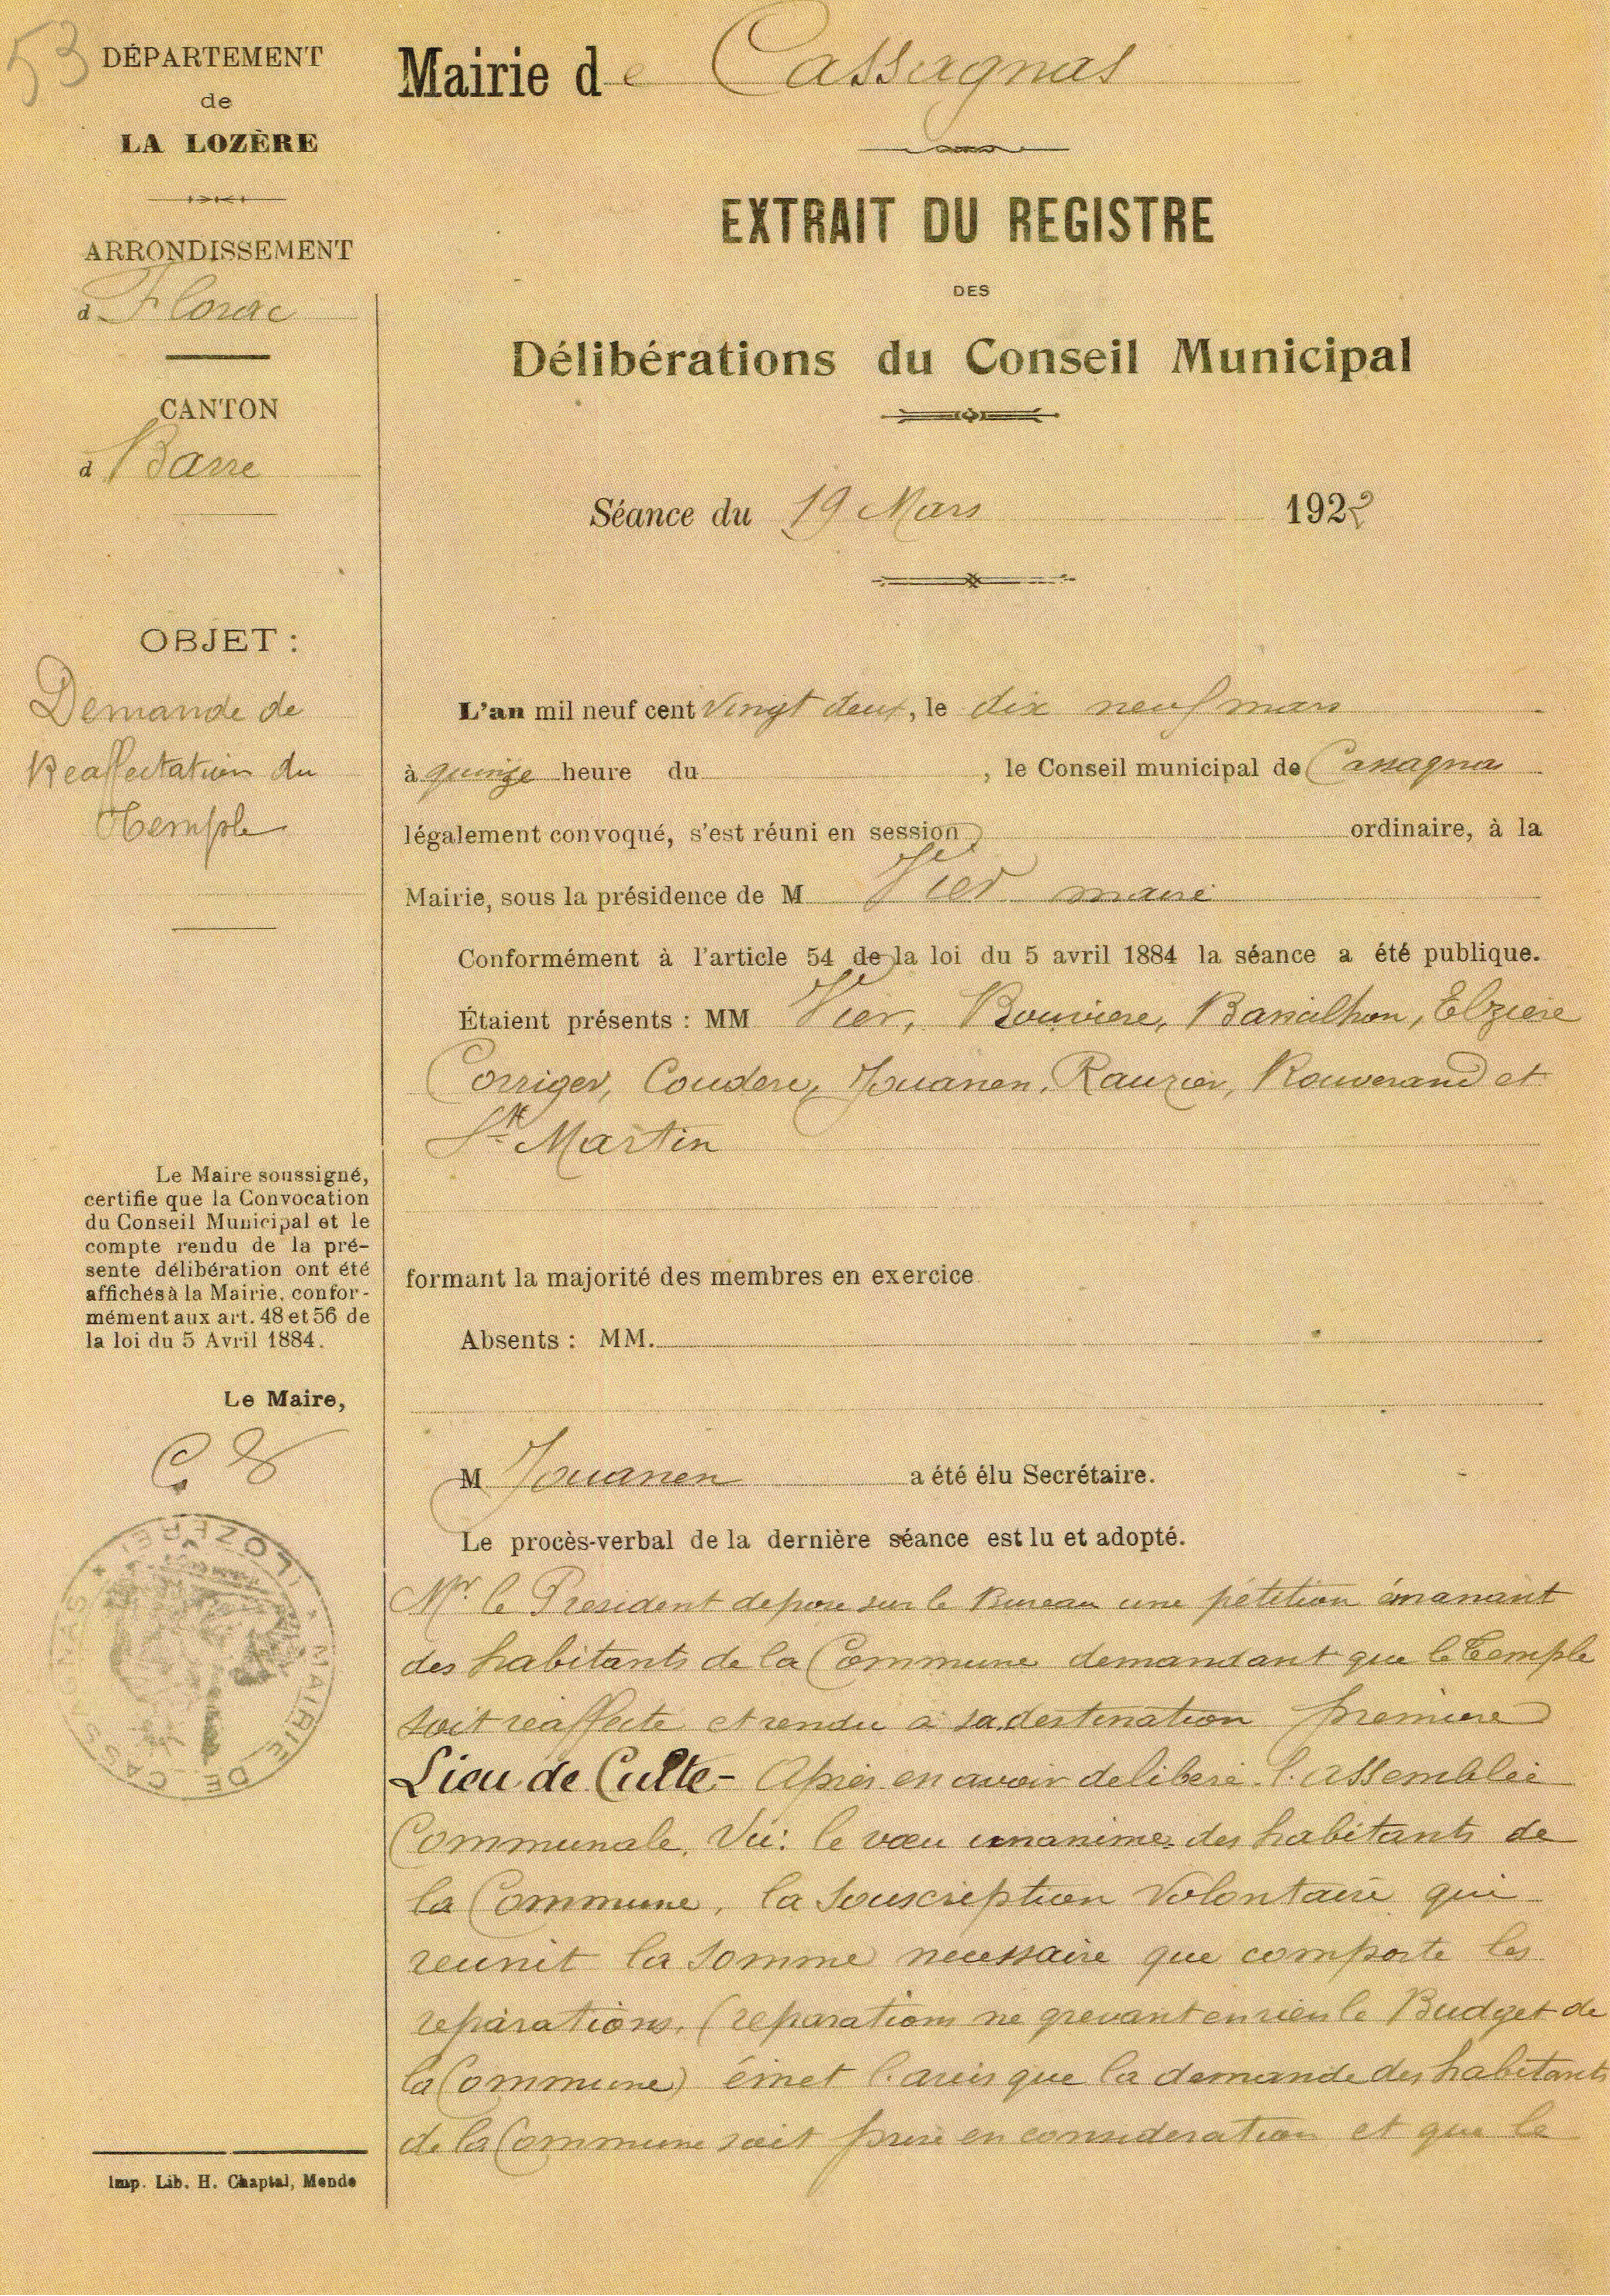 53
DÉPARTEMENT
de
LA LOZÈRE
ARRONDISSEMENT
d Florac
CANTON
d Barre
OBJET :
Demande de
Reaffectation du
Temple
Le Maire soussigné,
certifie que la Convocation
du Conseil Municipal et le
compte rendu de la pré-
sente délibération ont été
affichés à la Mairie, confor-
mément aux art. 48 et 56 de
la loi du 5 Avril 1884.
Le Maire,
MAIRIE DE CASSAGNAS
(LOZÈRE)
Imp. Lib. H. Chaptal, Mende
Mairie de Cassagnas
EXTRAIT DU REGISTRE
DES
Délibérations du Conseil Municipal
Séance du 19 Mars 1922
L'an mil neuf cent vingt deux, le dix neuf mars
à quinze heure du , le Conseil municipal de Cassagnas
légalement convoqué, s'est réuni en session ordinaire, à la
Mairie, sous la présidence de M Vier maire
Conformément à l'article 54 de la loi du 5 avril 1884 la séance a été publique.
Étaient présents : MM Vier, Bouviere, Banilhon, Elziere
Corriger, Couderc, Jouanen, Rauzier, Rouverand et
St Martin
formant la majorité des membres en exercice
Absents : MM.
M Jouanen a été élu Secrétaire.
Le procès-verbal de la dernière séance est lu et adopté.
Mr. le President depose sur le Bureau une pétition émanant
des habitants de la Commune demandant que le Temple
soit reaffecte et rendu a sa destination premiere
Lieu de Culte - Après en avoir deliberé l'assemblée
Communale, Vu: le vœu unanime des habitants de
la Commune, la Souscription Volontaire qui
reunit la somme necessaire que comporte les
reparations, (reparations ne grevant en rien le Budget de
la Commune) émet l'avis que la demande des habitants
de la Commune soit prise en consideration et que le